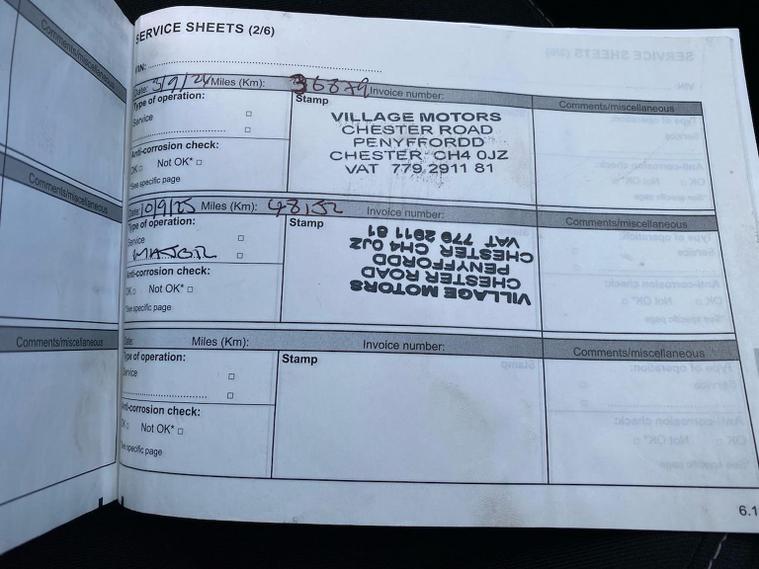 SERVICE SHEETS (2/6)
VIN:
Date: 3/9/24 Miles (Km): 36879 Invoice number:
Comments/miscellaneous
Type of operation:
Service
Anti-corrosion check:
OK Not OK*
*See specific page
Stamp
VILLAGE MOTORS
CHESTER ROAD
PENYFFORDD
CHESTER CH4 0JZ
VAT 779 2911 81
Comments/miscellaneous
Date: 10/9/25 Miles (Km): 48,152 Invoice number:
Comments/miscellaneous
Type of operation:
Service
MAJOR
Anti-corrosion check:
OK Not OK*
*See specific page
Stamp
VILLAGE MOTORS
CHESTER ROAD
PENYFFORDD
CHESTER CH4 0JZ
VAT 779 2911 81
Comments/miscellaneous
Date: Miles (Km): Invoice number:
Comments/miscellaneous
Type of operation:
Service
Anti-corrosion check:
OK Not OK*
*See specific page
Stamp
Comments/miscellaneous